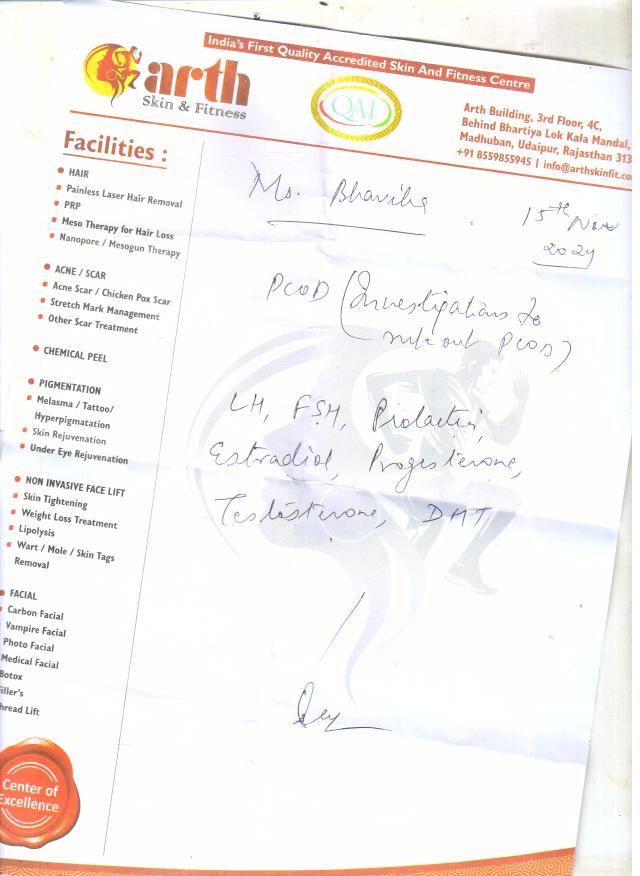 India's First Quality Accredited Skin And Fitness Centre
arth
Skin & Fitness
QAI
Arth Building, 3rd Floor, 4C,
Behind Bhartiya Lok Kala Mandal,
Madhuban, Udaipur, Rajasthan 313
+91 8559855945 | info@arthskinfit.co
Facilities :
HAIR
Painless Laser Hair Removal
PRP
Meso Therapy for Hair Loss
Nanopore / Mesogun Therapy
ACNE / SCAR
Acne Scar / Chicken Pox Scar
Stretch Mark Management
Other Scar Treatment
CHEMICAL PEEL
PIGMENTATION
Melasma / Tattoo/
Hyperpigmatation
Skin Rejuvenation
Under Eye Rejuvenation
NON INVASIVE FACE LIFT
Skin Tightening
Weight Loss Treatment
Lipolysis
Wart / Mole / Skin Tags
Removal
FACIAL
Carbon Facial
Vampire Facial
Photo Facial
Medical Facial
Botox
iller's
hread Lift
Center of
Excellence
Ms. Bhavika
15th Nov
2024
PCOD (Investigations to
rule out PCOD)
LH, FSH, Prolactin,
Estradiol, Progesterone,
Testosterone, DHT